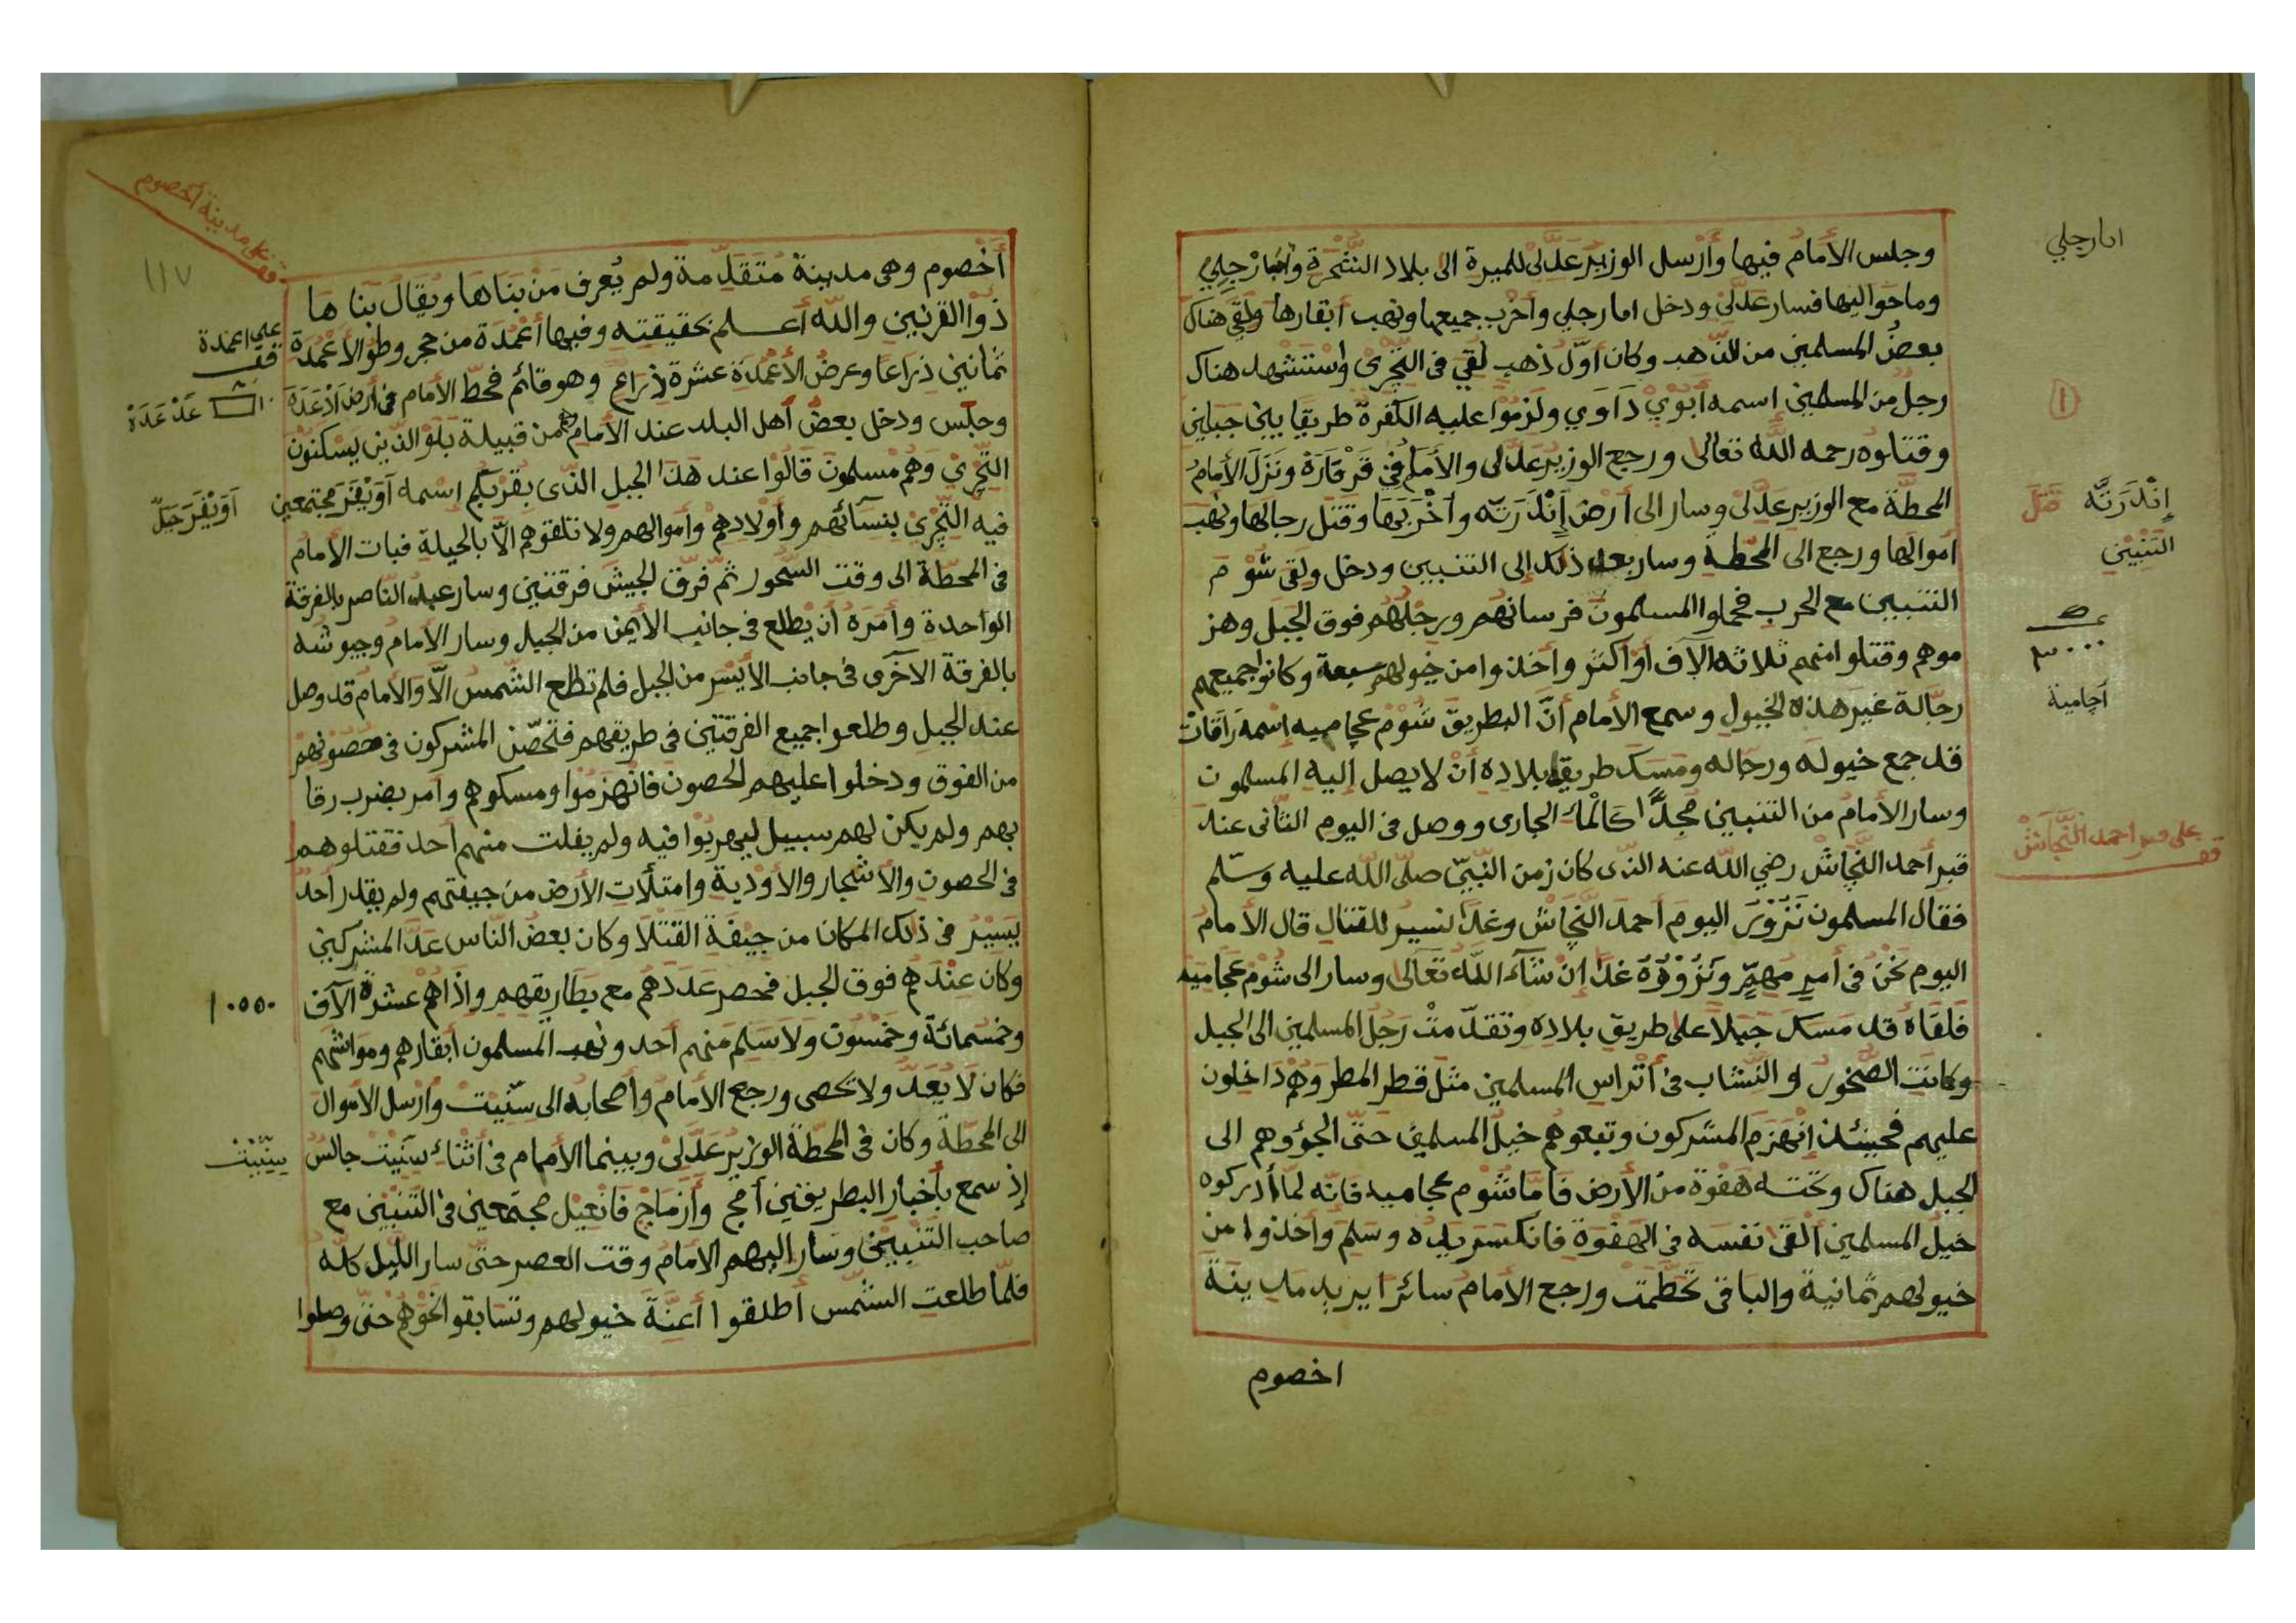 وجلس الأمام فيها وأرسل الوزير عدلى للميرة الى بلاد الشجرة وامارجلي
وما حواليها فسار عدلى ودخل امارجلي وأخرب جميعها ونهب أبقارها ولقي هناك
بعض المسلمين من الذهب وكان أول ذهب لقي فى التجرى واستشهد هناك
رجل من المسلمين اسمه أبوي داوي ولزموا عليه الكفرة طريقا بين جبلين
وقتلوه رحمه الله تعالى ورجع الوزير عدلى والأمام في قرقارة ونزل الأمام
المحطة مع الوزير عدلى وسار الى أرض إندرته وأخربها وقتل رجالها ونهب
أموالها ورجع الى المحطة وسار بعد ذلك إلى التنبين ودخل ولقى شوم
التنبين مع الحرب فحملوا المسلمون فرسانهم ورجلهم فوق الجبل وهز
موهم وقتلوا منهم ثلاثة الاف أو اكثر وأخذوا من خيولهم سبعة وكانوا جميعهم
رجالة غير هذه الخيول وسمع الأمام أن البطريق شوم عجاميه إسمه راقات
قد جمع خيوله ورجاله ومسك طريق بلاده أن لا يصل إليه المسلمون
وسار الأمام من التنبين مجدا كالماء الجارى ووصل فى اليوم الثانى عند
قبر أحمد النجاش رضي الله عنه الذى كان زمن النبي صلى الله عليه وسلم
فقال المسلمون نزور اليوم أحمد النجاش وغدا نسير للقتال قال الأمام
اليوم نحن فى أمر مهم ونزوره غدا إن شاء الله تعالى وسار الى شوم عجاميه
فلقاه قد مسك جبلا على طريق بلاده وتقدمت رجل المسلمين الى الجبل
وكانت الصخور او النشاب فى أتراس المسلمين مثل قطر المطر وهم داخلون
عليهم فحينئذ إنهزم المشركون وتبعوهم خيل المسلمين حتى الجؤوهم الى
الجبل هناك وتحته هفوة من الأرض فأما شوم عجاميه فانه لما أدركوه
خيل المسلمين ألقى نفسه فى الهفوة فانكسر يده وسلم وأخذوا من
خيولهم ثمانية والباقى تحطمت ورجع الأمام سائرا يريد مدينة
اخصوم
امارجلي
١
إندرته
التنبين
٣٠٠٠
اجامية
قف على قبر احمد النجاش
أخصوم وهى مدينة متقدمة ولم يعرف من بناها ويقال بناها
ذوا القرنين والله أعلم بحقيقته وفيها أعمدة من حجر وطول الأعمدة
ثمانين ذراعا وعرض الأعمدة عشرة أذراع وهو قائم فحط الأمام فى أرض
وجلس ودخل بعض أهل البلد عند الأمام وهم من قبيلة بلو الذين يسكنون
التجري وهم مسلمون قالوا عند هذا الجبل الذى بقربكم اسمه آويقر مجتمعين
فيه التجرى بنسائهم وأولادهم وأموالهم ولا تلقوهم الا بالحيلة فبات الأمام
فى المحطة الى وقت السحور ثم فرق الجيش فرقتين وسار عبد الناصر بالفرقة
الواحدة وأمره أن يطلع فى جانب الأيمن من الجبل وسار الأمام وجيوشه
بالفرقة الاخرى فى جانب الأيسر من الجبل فلم تطلع الشمس الا والامام قد وصل
عند الجبل وطلعوا جميع الفرقتين في طريقهم فتحصن المشركون فى حصونهم
من الفوق ودخلوا عليهم الحصون فانهزموا ومسكوهم وأمر بضرب رقا
بهم ولم يكن لهم سبيل ليهربوا فيه ولم يفلت منهم أحد فقتلوهم
فى الحصون والأشجار والأودية وامتلأت الأرض من جيفتهم ولم يقدر أحد
يسير فى ذلك المكان من جيفة القتلا وكان بعض الناس عد المشركين
وكان عندهم فوق الجبل فحصر عددهم مع بطاريقهم واذا هم عشرة الآف
وخمسمائة وخمسون ولا سلم منهم أحد ونهب المسلمون أبقارهم ومواشهم
فكان لا يعد ولا تحصى ورجع الأمام وأصحابه الى سنيت وأرسل الأموال
الى المحطة وكان فى المحطة الوزير عدلى وبينما الأمام فى أثناء سنيت جالس
إذ سمع بأخبار البطريقين أمج وأزماج فانعيل مجتمعين فى التنبين مع
صاحب التنبين وسار اليهم الامام وقت العصر حتى سار الليل كله
فلما طلعت الشمس أطلقوا أعنة خيولهم وتسابقوا نحوهم حتى وصلوا
قف على مدينة أخصوم
١١٧
قف على اعمدة
آويقر جبل
١٠٥٥٠
سنيت